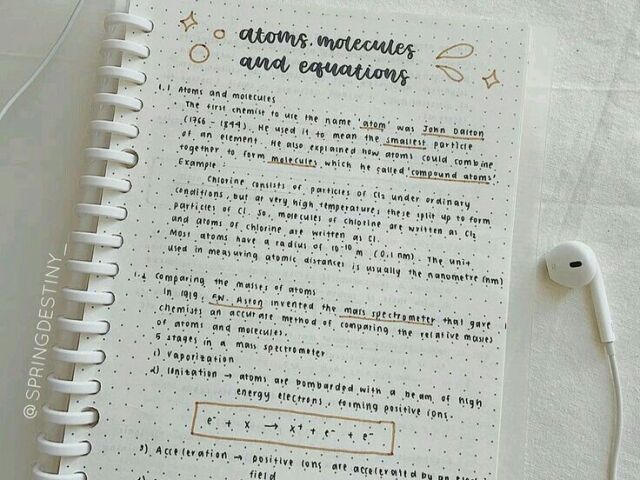 atoms, molecules
and equations
1.1 Atoms and molecules
• The first chemist to use the name 'atom' was John Dalton
(1766 - 1844). He used it to mean the smallest particle
of an element. He also explained how atoms could combine
together to form molecules which he called 'compound atoms'.
Example:
Chlorine consists of particles of Cl2 under ordinary
conditions, but at very high temperatures these split up to form
particles of Cl. So, molecules of chlorine are written as Cl2
and atoms of chlorine are written as Cl.
• Most atoms have a radius of 10-10 m (0.1 nm). The unit
used in measuring atomic distances is usually the nanometre (nm)
1.2 Comparing the masses of atoms
In 1919, F.W. Aston invented the mass spectrometer that gave
chemists an accurate method of comparing the relative masses
of atoms and molecules.
5 stages in a mass spectrometer
1) Vaporization
2) Ionization → atoms are bombarded with a beam of high
energy electrons, forming positive ions.
e- + X → X+ + e- + e-
3) Acceleration → positive ions are accelerated by an
field
@SPRINGDESTINY_